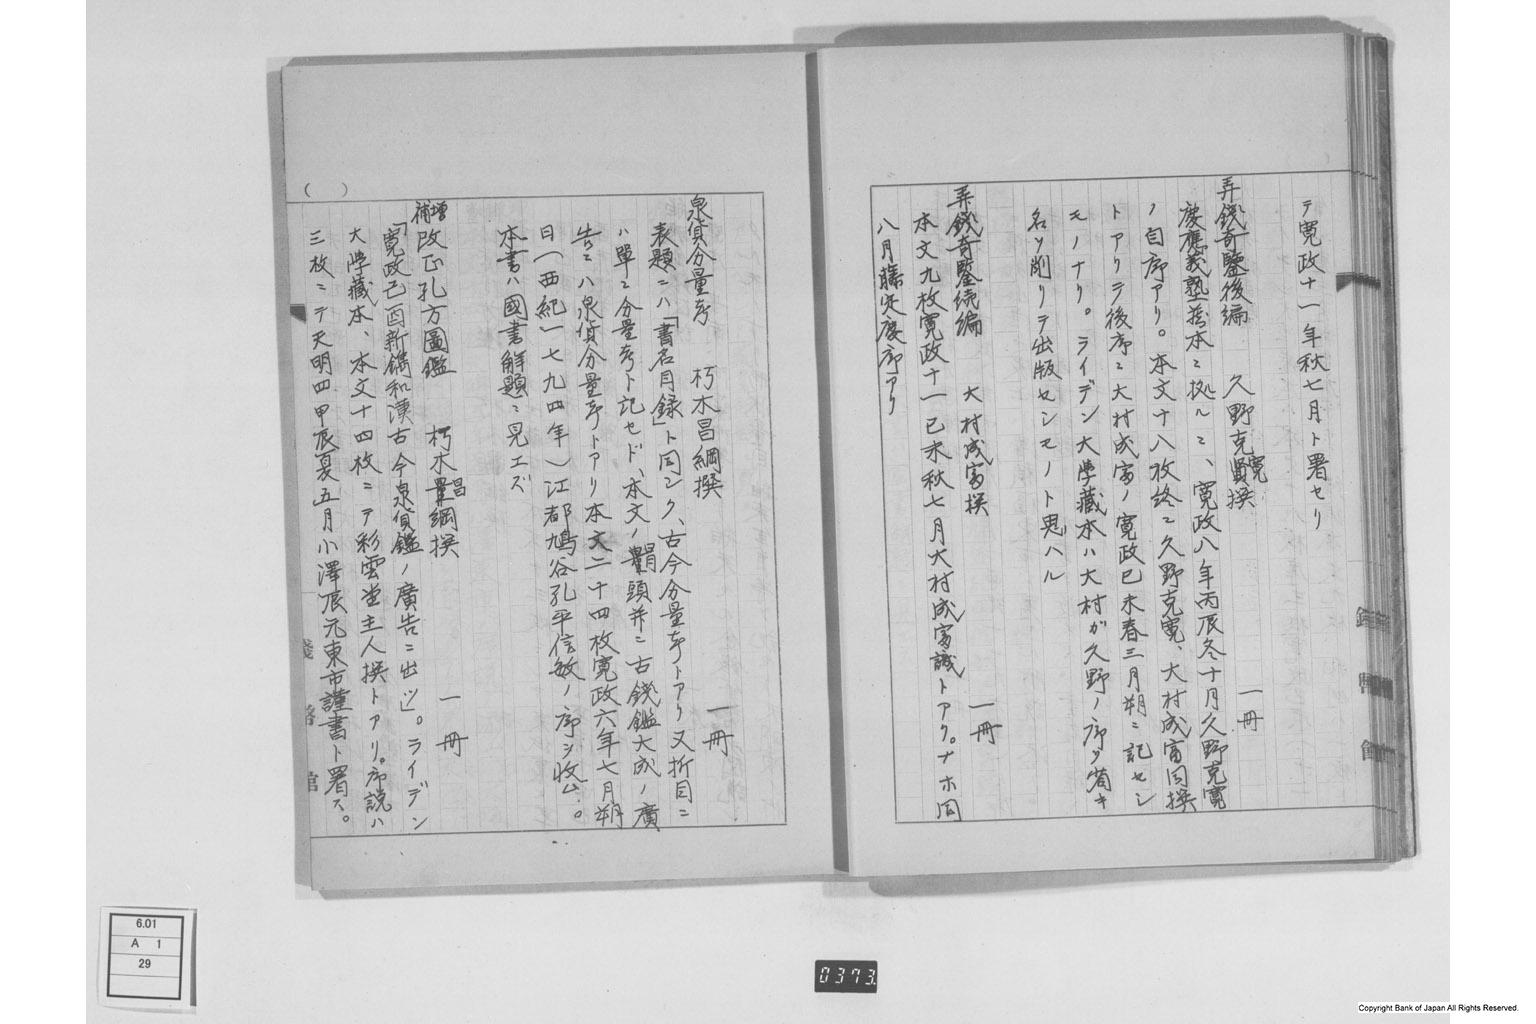 テ寛政十一年秋七月ト署セリ
弄錢奇鑒後編 久野克寛撰 一冊
慶應義塾藏本ニ拠ルニ、寛政八年丙辰冬十月久野克寛
ノ自序アリ。本文十八枚終ニ久野克寛、大村成富同撰
トアリテ後序ニ大村成富ノ寛政己未春三月朔ニ記セシ
モノナリ。ライデン大學藏本ハ大村ガ久野ノ序ヲ省キ
名ヲ削リテ出版セシモノト思ハル
弄錢奇鑒続編 大村成富撰 一冊
本文九枚寛政十一己未秋七月大村成富識トアリ。ナホ同
八月藤定慶序アリ
泉貨分量考 朽木昌綱撰 一冊
表題ニハ「書名目録」ト同ジク、古今分量考トアリ又折目ニ
ハ單ニ分量考ト記セド、本文ノ頭并ニ古錢鑑大成ノ廣
告ニハ泉貨分量考トアリ本文二十四枚寛政六年七月朔
日(西紀一七九四年)江都鳩谷孔平信敏ノ序ヲ收ム。
本書ハ國書解題ニ見エズ
増補改正孔方圖鑑 朽木昌綱撰 一冊
「寛政己酉新鐫和漢古今泉貨鑑ノ廣告ニ出ヅ」。ライデン
大學藏本、本文十四枚ニテ彩雲堂主人撰トアリ。序説ハ
三枚ニテ天明四甲辰夏五月小澤辰元東市謹書ト署ス。
6.01
A 1
29
0373
Copyright Bank of Japan All Rights Reserved.